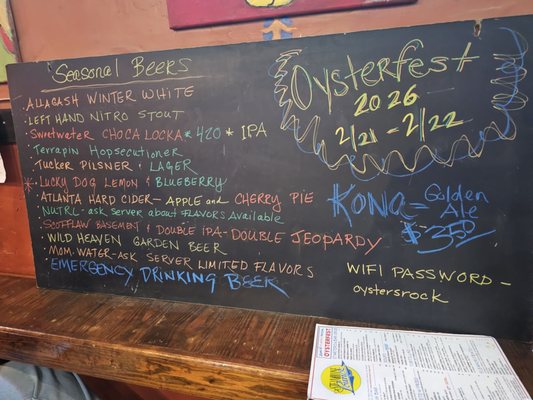 Seasonal Beers
ALLAGASH WINTER WHITE
LEFT HAND NITRO STOUT
Sweetwater CHOCA LOCKA * 420 * IPA
Terrapin Hopsecutioner
Tucker PILSNER & LAGER
* LUCKY DOG LEMON & BLUEBERRY
ATLANTA HARD CIDER - APPLE and CHERRY PIE
NUTRL - ASK SERVER ABOUT FLAVORS Available
SCOFFLAW BASEMENT & DOUBLE IPA - DOUBLE JEOPARDY
WILD HEAVEN GARDEN BEER
MOM WATER - ASK SERVER LIMITED FLAVORS
EMERGENCY DRINKING BEER
OYSTERFEST
2026
2/21 - 2/22
KONA = Golden
Ale
$3.50
WIFI PASSWORD -
oystersrock